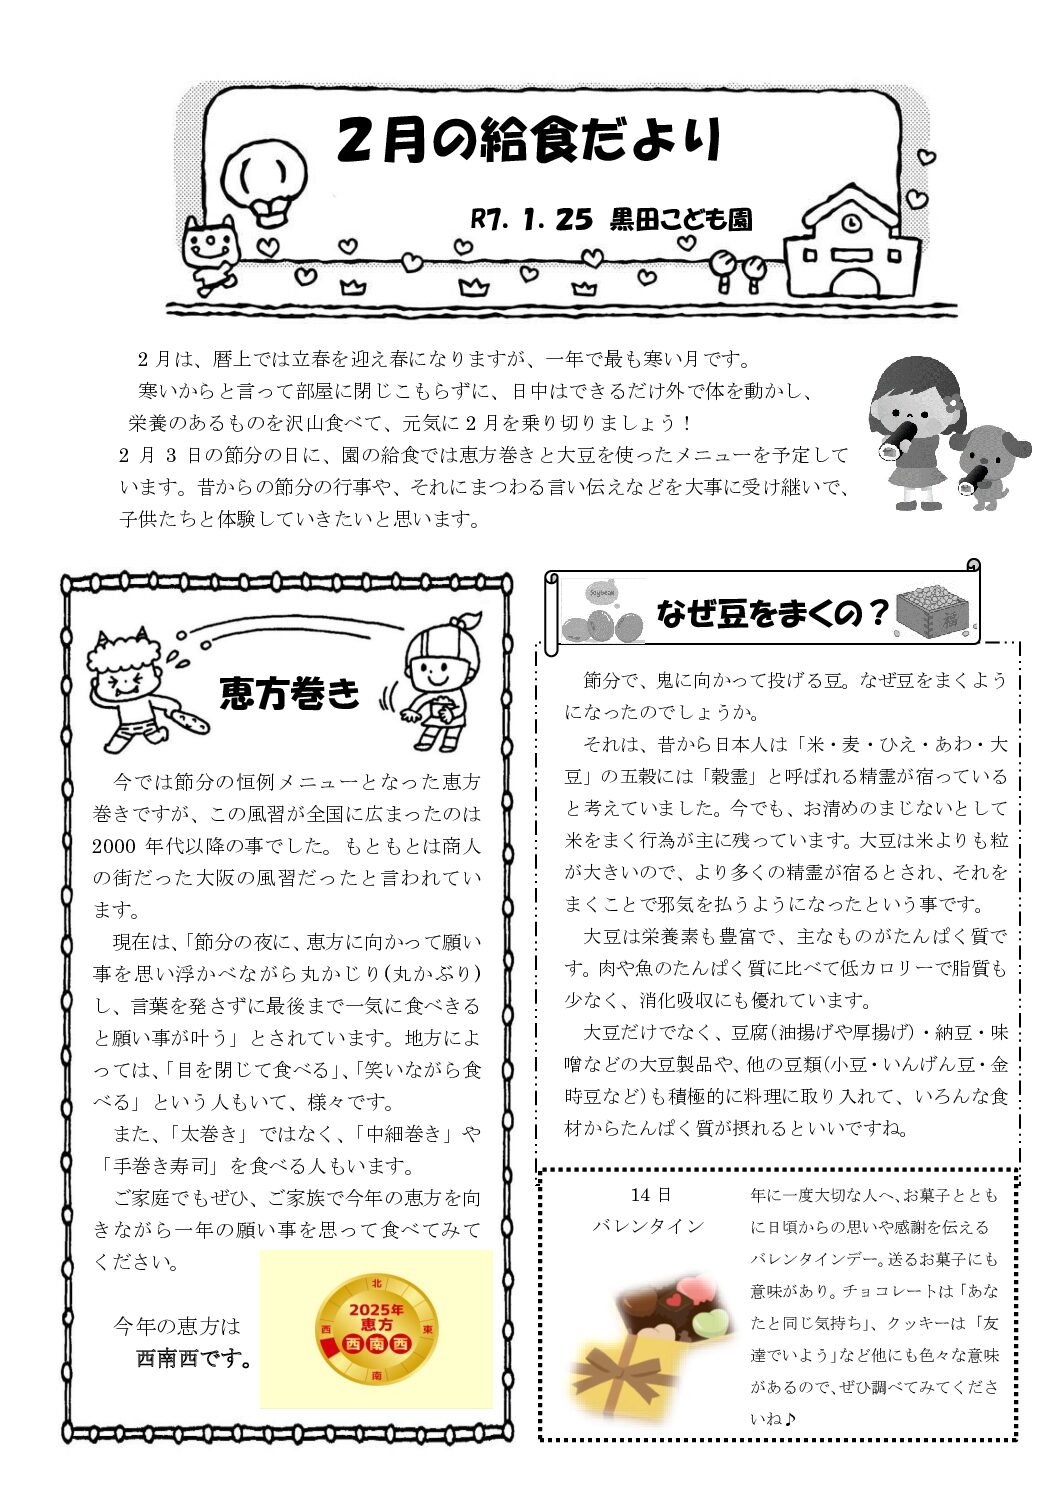 ２月の給食だより
R7. 1. 25 黒田こども園
2 月は、暦上では立春を迎え春になりますが、一年で最も寒い月です。
寒いからと言って部屋に閉じこもらずに、日中はできるだけ外で体を動かし、
栄養のあるものを沢山食べて、元気に 2 月を乗り切りましょう！
2 月 3 日の節分の日に、園の給食では恵方巻きと大豆を使ったメニューを予定して
います。昔からの節分の行事や、それにまつわる言い伝えなどを大事に受け継いで、
子供たちと体験していきたいと思います。
恵方巻き
今では節分の恒例メニューとなった恵方
巻きですが、この風習が全国に広まったのは
2000 年代以降の事でした。もともとは商人
の街だった大阪の風習だったと言われてい
ます。
現在は、「節分の夜に、恵方に向かって願い
事を思い浮かべながら丸かじり(丸かぶり)
し、言葉を発さずに最後まで一気に食べきる
と願い事が叶う」とされています。地方によ
っては、「目を閉じて食べる」、「笑いながら食
べる」という人もいて、様々です。
また、「太巻き」ではなく、「中細巻き」や
「手巻き寿司」を食べる人もいます。
ご家庭でもぜひ、ご家族で今年の恵方を向
きながら一年の願い事を思って食べてみて
ください。
今年の恵方は
西南西です。
北
2025年
恵方
西
東
西南西
南
Soybean
なぜ豆をまくの？
福
節分で、鬼に向かって投げる豆。なぜ豆をまくよう
になったのでしょうか。
それは、昔から日本人は「米・麦・ひえ・あわ・大
豆」の五穀には「穀霊」と呼ばれる精霊が宿っている
と考えていました。今でも、お清めのまじないとして
米をまく行為が主に残っています。大豆は米よりも粒
が大きいので、より多くの精霊が宿るとされ、それを
まくことで邪気を払うようになったという事です。
大豆は栄養素も豊富で、主なものがたんぱく質で
す。肉や魚のたんぱく質に比べて低カロリーで脂質も
少なく、消化吸収にも優れています。
大豆だけでなく、豆腐(油揚げや厚揚げ)・納豆・味
噌などの大豆製品や、他の豆類(小豆・いんげん豆・金
時豆など)も積極的に料理に取り入れて、いろんな食
材からたんぱく質が摂れるといいですね。
14 日
バレンタイン
年に一度大切な人へ、お菓子ととも
に日頃からの思いや感謝を伝える
バレンタインデー。送るお菓子にも
意味があり。チョコレートは「あな
たと同じ気持ち」、クッキーは「友
達でいよう」など他にも色々な意味
があるので、ぜひ調べてみてくださ
いね♪